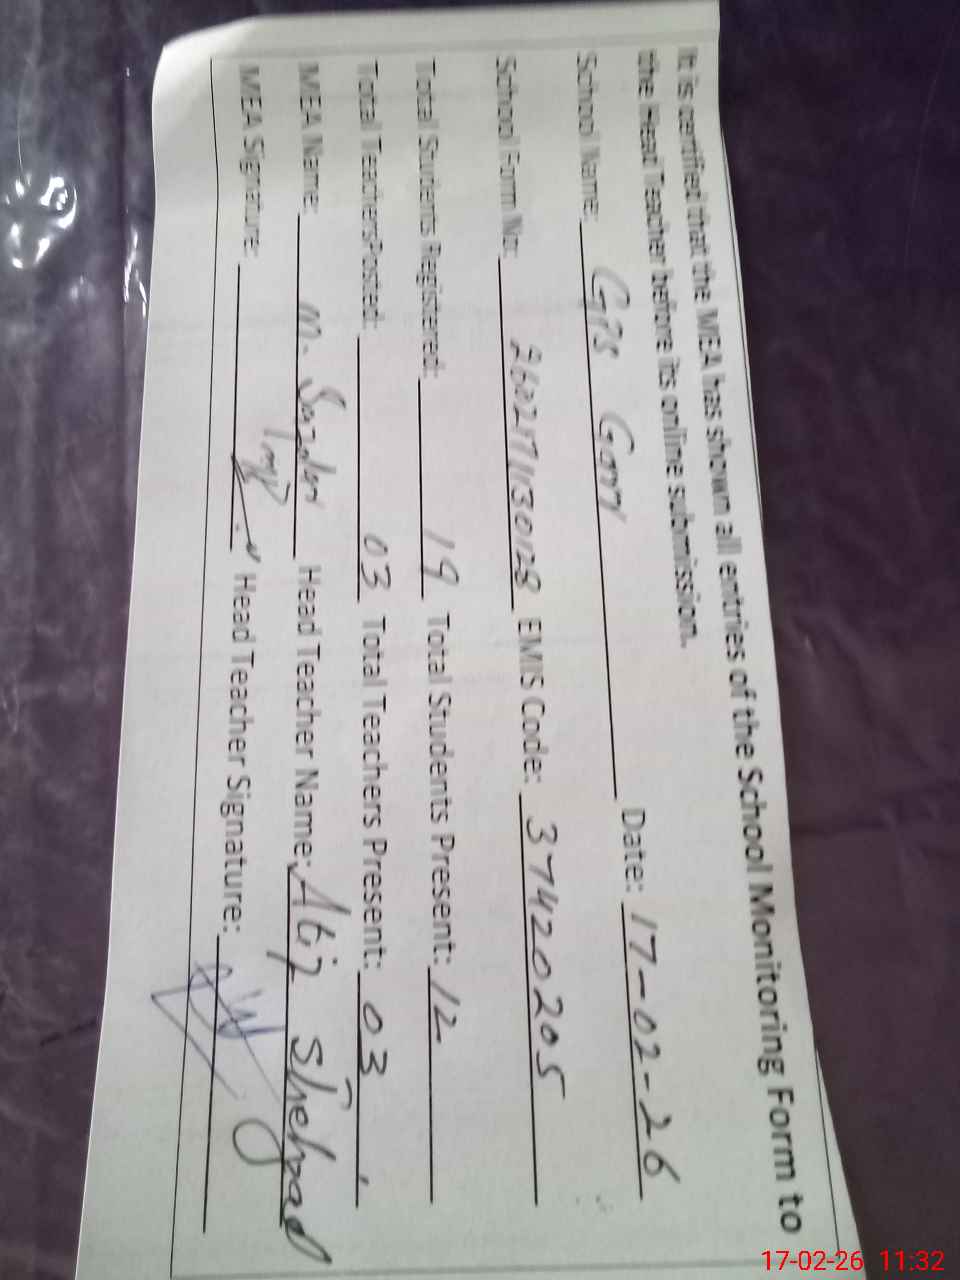 It is certified that the MEA has shown all entries of the School Monitoring Form to
the Head Teacher before its online submission.
School Name: GPS Date: 17-02-26
School Form No: EMIS Code: 37420205
Total Students Registered: 19 Total Students Present: 12
Total Teachers Posted: 03 Total Teachers Present: 03
MEA Name: M. Head Teacher Name: Shehzad
MEA Signature: Head Teacher Signature:
17-02-26 11:32